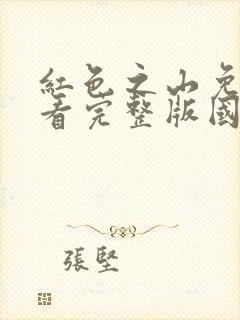 紅色之山免
看完整版國
張堅